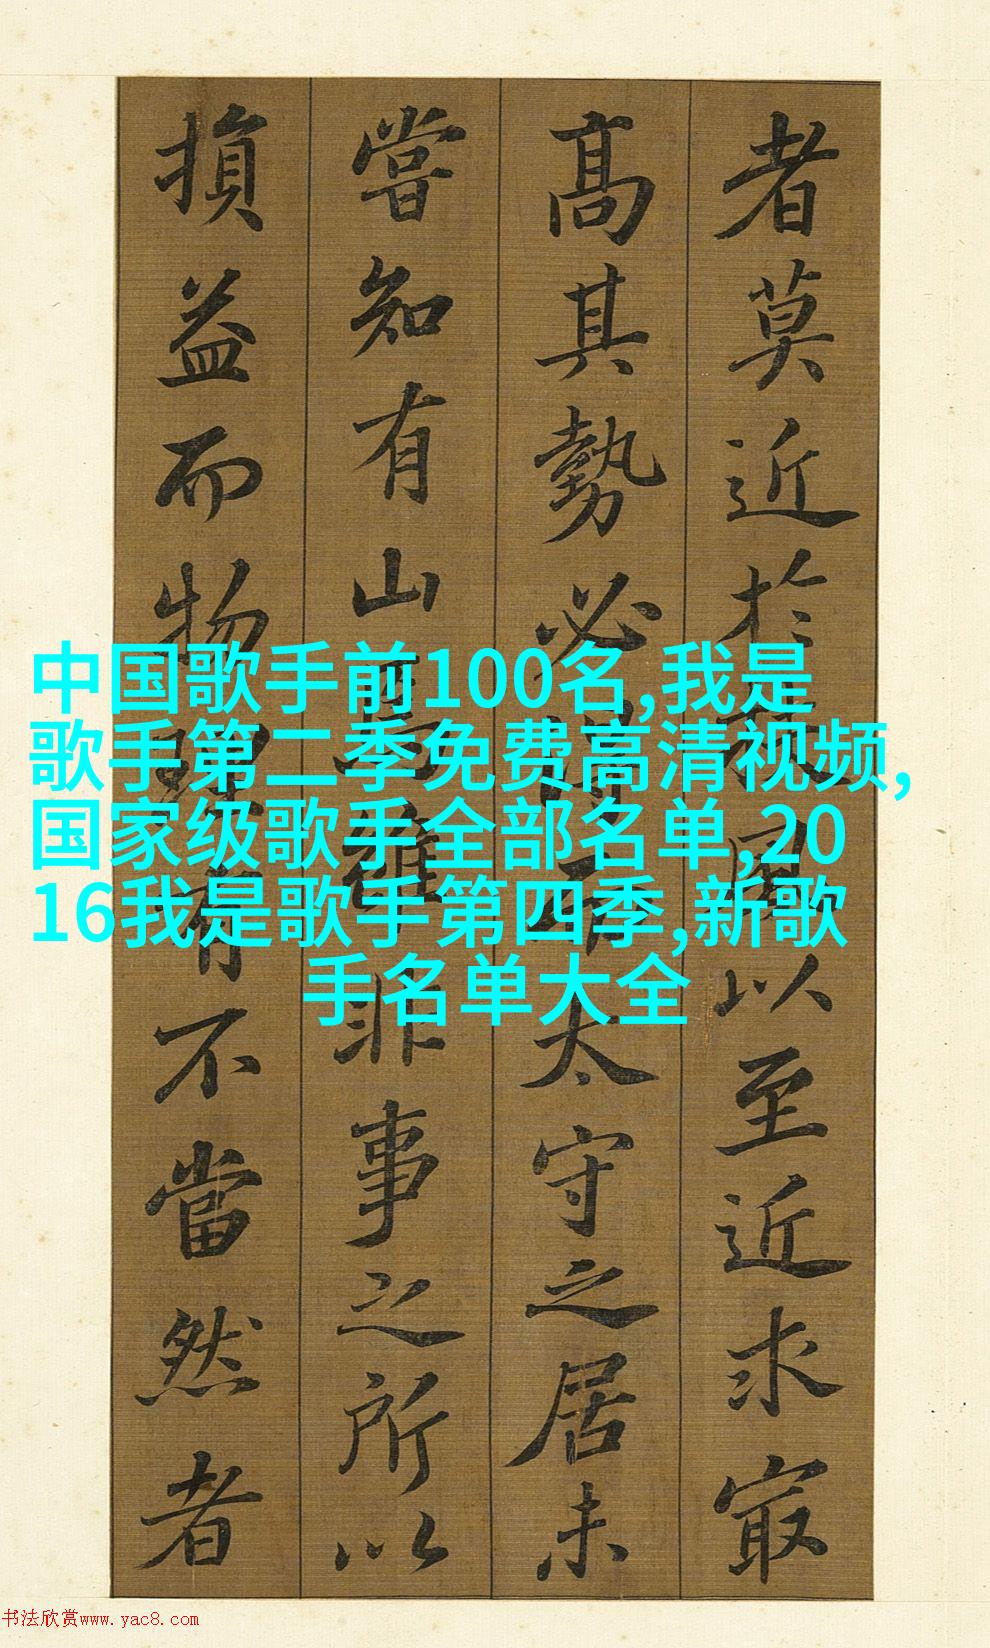 者莫近於扶風以至近求最
高其勢必得而太守之居未
嘗知有山焉雖非事之所以
損益而物理有不當然者
中国歌手前100名,我是
歌手第二季免费高清视频,
国家级歌手全部名单,20
16我是歌手第四季,新歌
手名单大全
书法欣赏www.yac8.com